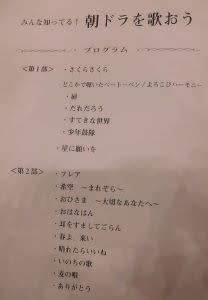 みんな知ってる! 朝ドラを歌おう
プログラム
<第1部>
・さくらさくら
どこかで聴いたベートーベン/よろこびハーモニー
・扉
・だれだろう
・すてきな世界
・少年鼓隊
・星に願いを
<第2部>
・フレア
・希空 ~まれぞら~
・おひさま ~大切なあなたへ~
・おはなはん
・耳をすましてごらん
・春よ、来い
・晴れたらいいね
・いのちの歌
・麦の唄
・ありがとう